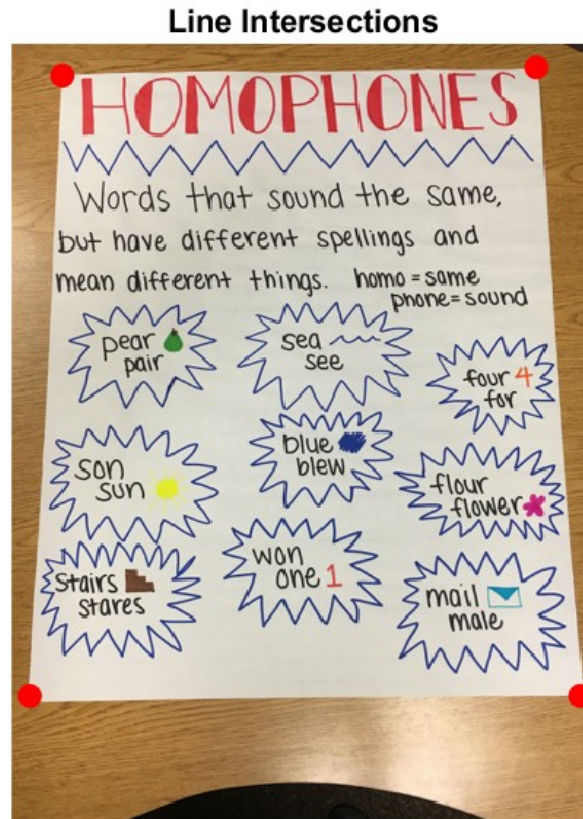 Line Intersections
HOMOPHONES
Words that sound the same,
but have different spellings and
mean different things. homo = same
phone = sound
pear
pair
sea
see
four 4
for
son
sun
blue
blew
flour
flower
stairs
stares
won
one 1
mail
male